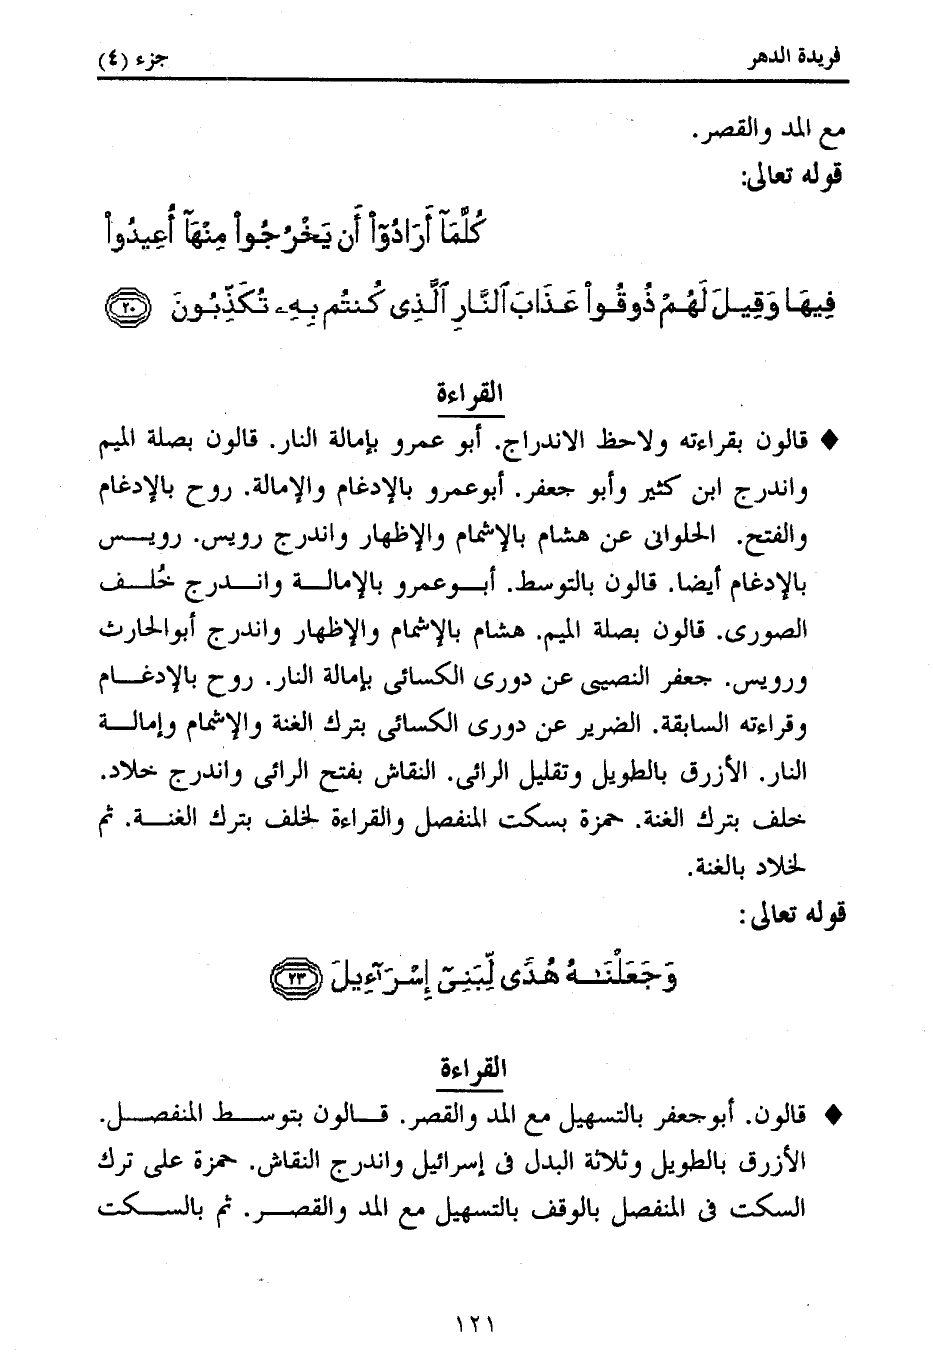 فريدة الدهر
جزء (٤)
مع المد والقصر.
قوله تعالى:
كُلَّمَآ أَرَادُوٓا۟ أَن يَخْرُجُوا۟ مِنْهَآ أُعِيدُوا۟
فِيهَا وَقِيلَ لَهُمْ ذُوقُوا۟ عَذَابَ ٱلنَّارِ ٱلَّذِى كُنتُم بِهِۦ تُكَذِّبُونَ ٢٠
القراءة
♦ قالون بقراءته ولاحظ الاندراج. أبو عمرو بإمالة النار. قالون بصلة الميم
واندرج ابن كثير وأبو جعفر. أبوعمرو بالإدغام والإمالة. روح بالإدغام
والفتح. الحلوانى عن هشام بالإشمام والإظهار واندرج رويس. رويس
بالإدغام أيضا. قالون بالتوسط. أبوعمرو بالإمالة واندرج خُلف
الصورى. قالون بصلة الميم. هشام بالإشمام والإظهار واندرج أبوالحارث
ورويس. جعفر النصيبى عن دورى الكسائى بإمالة النار. روح بالإدغام
وقراءته السابقة. الضرير عن دورى الكسائى بترك الغنة والإشمام وإمالة
النار. الأزرق بالطويل وتقليل الرائى. النقاش بفتح الرائى واندرج خلاد.
خلف بترك الغنة. حمزة بسكت المنفصل والقراءة لخلف بترك الغنة. ثم
لخلاد بالغنة.
قوله تعالى:
وَجَعَلْنَـٰهُ هُدًى لِّبَنِىٓ إِسْرَٰٓءِيلَ ٢٣
القراءة
♦ قالون. أبوجعفر بالتسهيل مع المد والقصر. قالون بتوسط المنفصل.
الأزرق بالطويل وثلاثة البدل فى إسرائيل واندرج النقاش. حمزة على ترك
السكت فى المنفصل بالوقف بالتسهيل مع المد والقصر. ثم بالسكت
١٢١